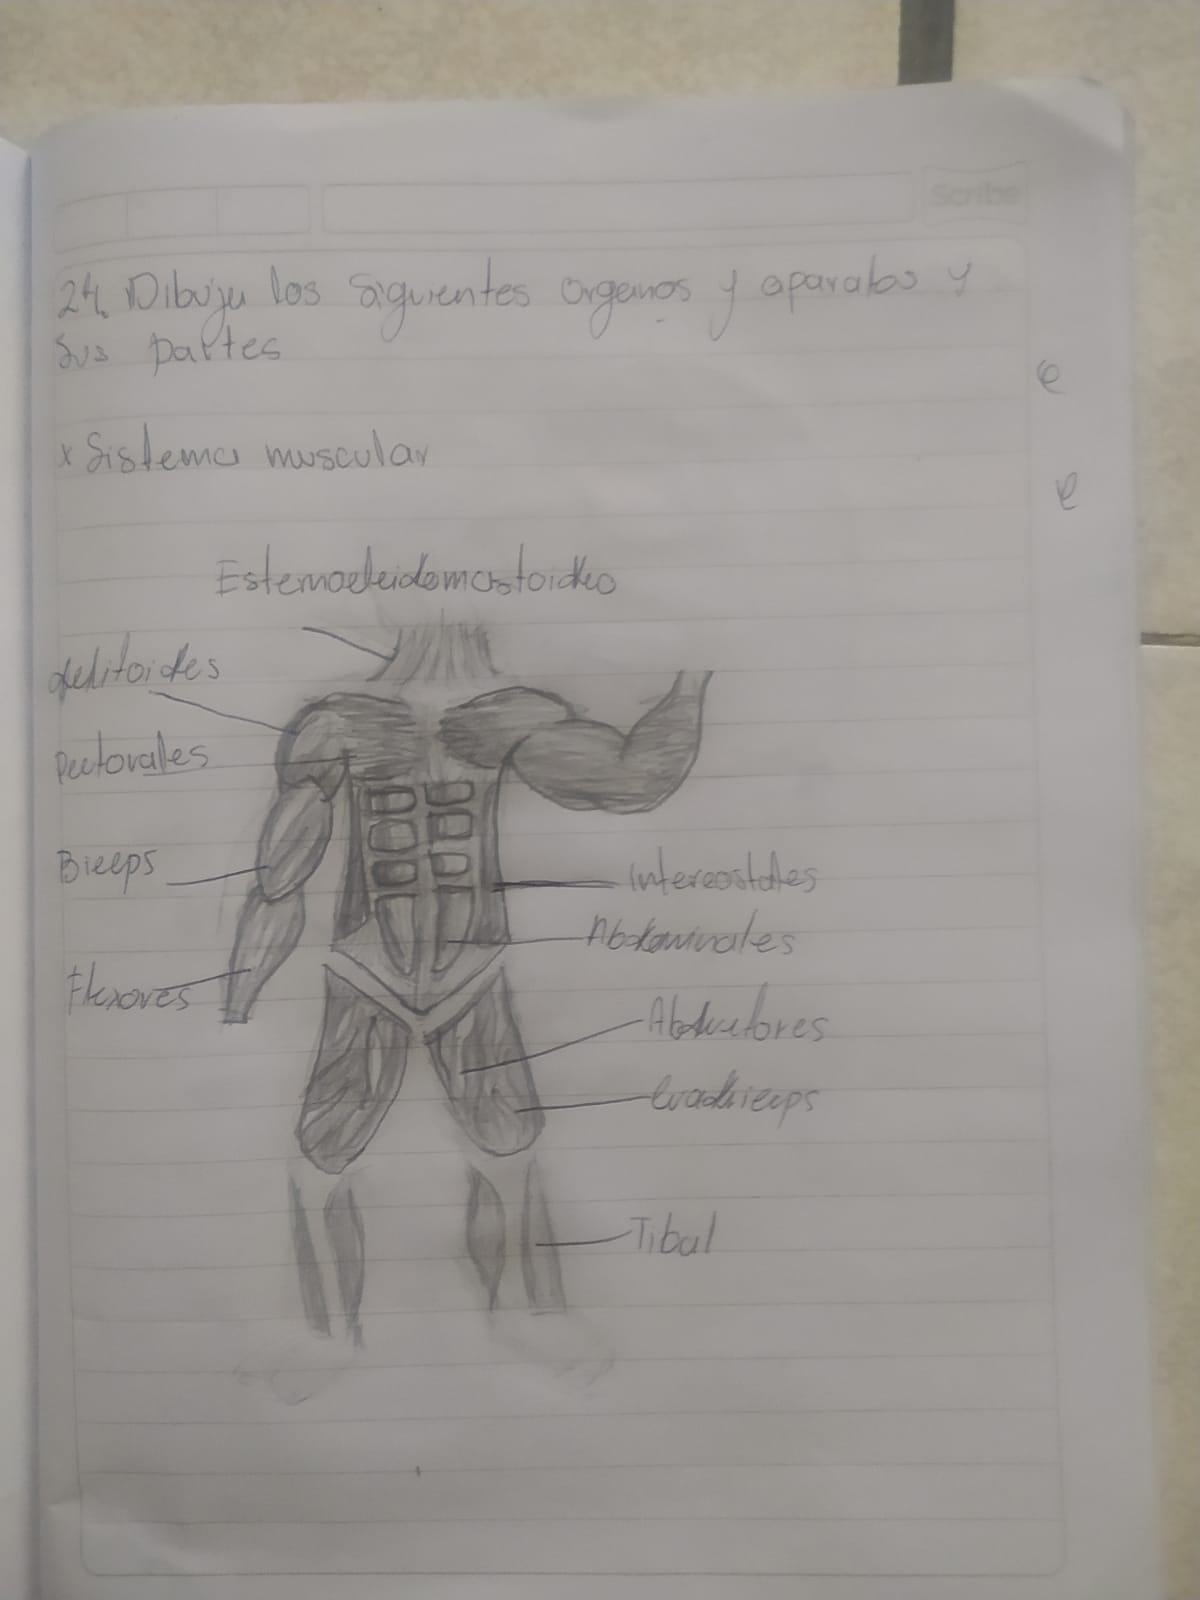 Scribe
24. Dibuja los siguientes organos y aparatos y
sus partes
e
x Sistema muscular
e
Esternocleidomastoideo
deltoides
Pectorales
Biceps
Intercostales
Abdominales
Flexores
Abductores
Cuadriceps
Tibal